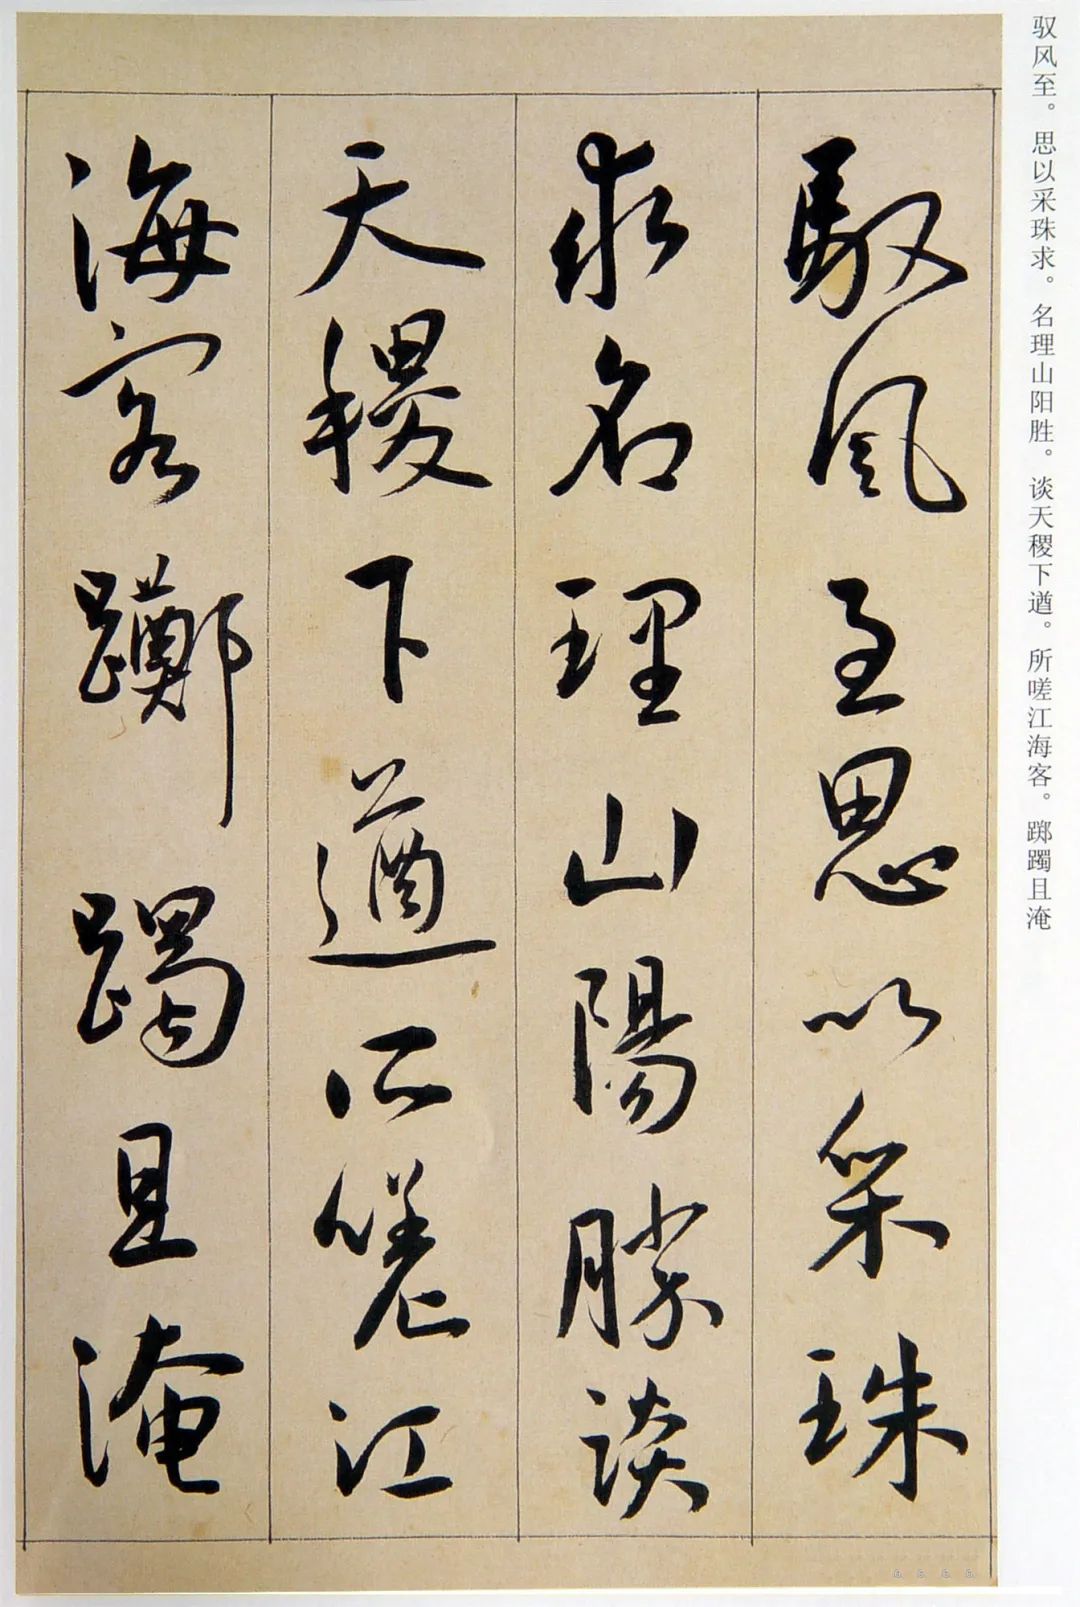 驭风至。思以采珠求。名理山阳胜。谈天稷下遒。所嗟江海客。踯躅且淹
馭風至思以采珠
求名理山陽勝談
天稷下遒所嗟江
海客躑躅且淹